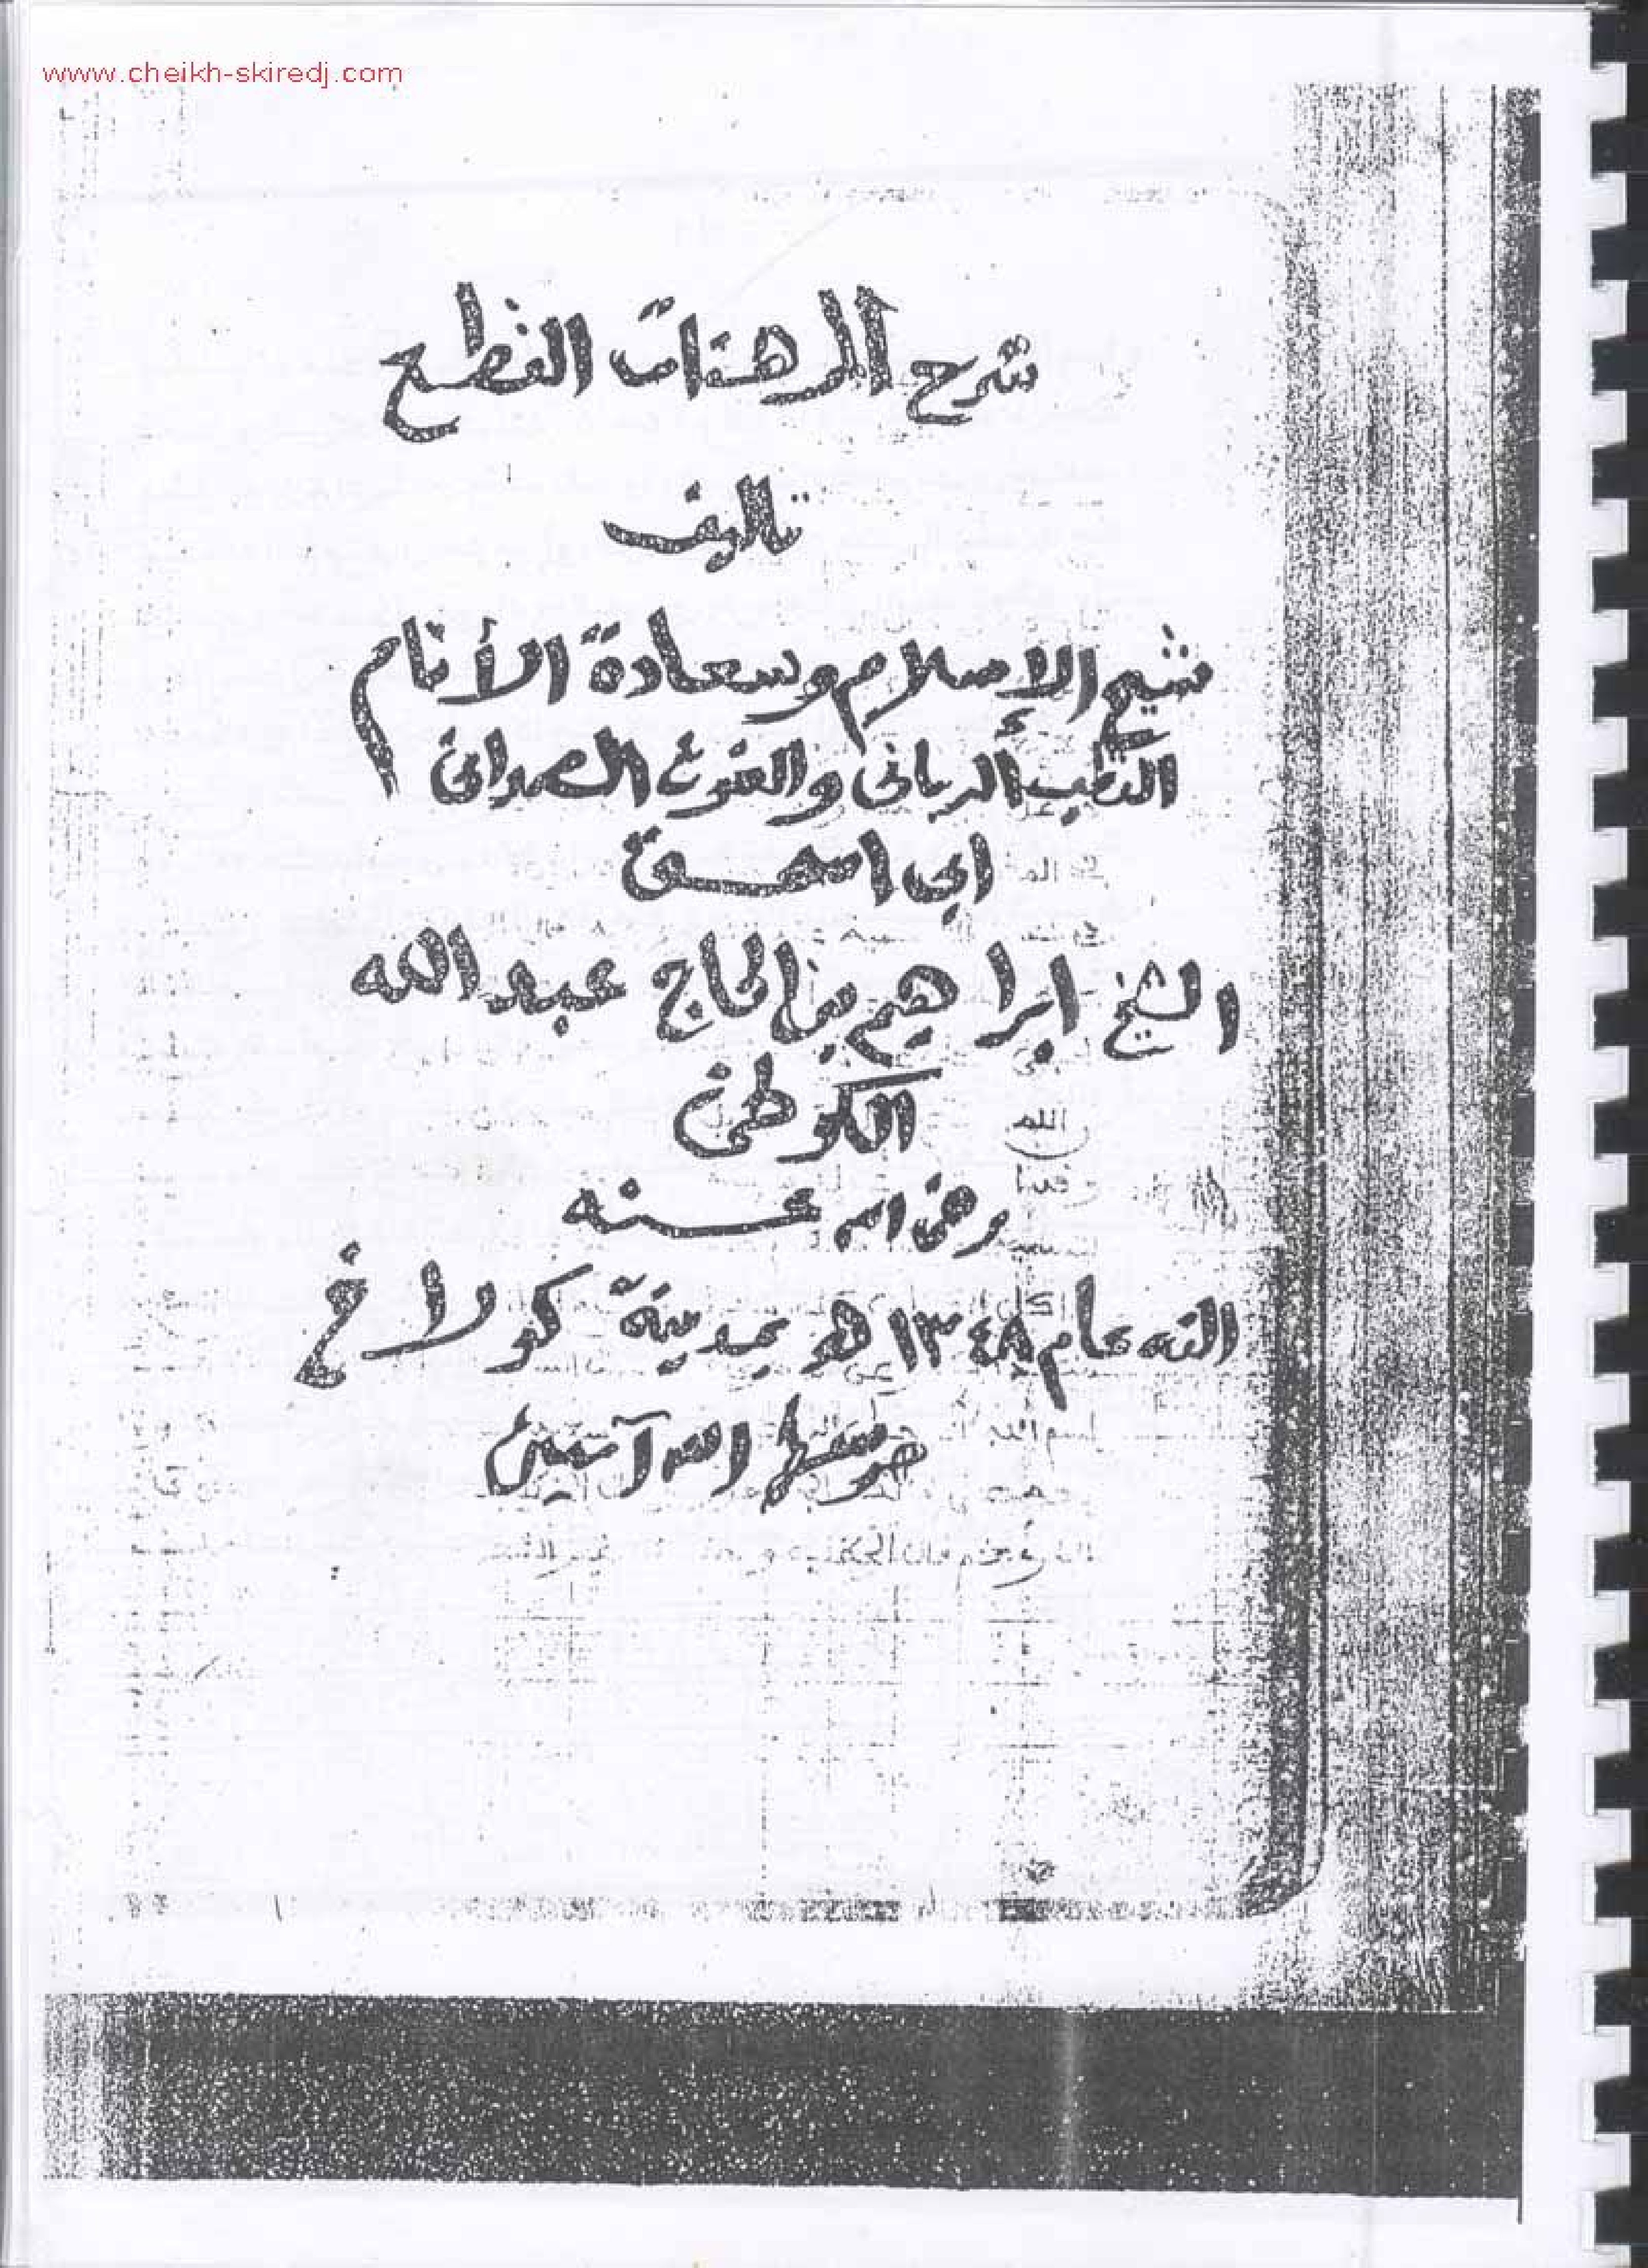 www.cheikh-skiredj.com
شرح المرهفات القطع
تاليف
شيخ الإسلام وسعادة الأنام
القطب الرباني والغوث الصمداني
ابي اسحق
الشيخ ابراهيم بن الحاج عبد الله
الكولخي
رضى الله عنه
الفه عام ١٣٤٨ هو بمدينة كولاخ
الله آمين